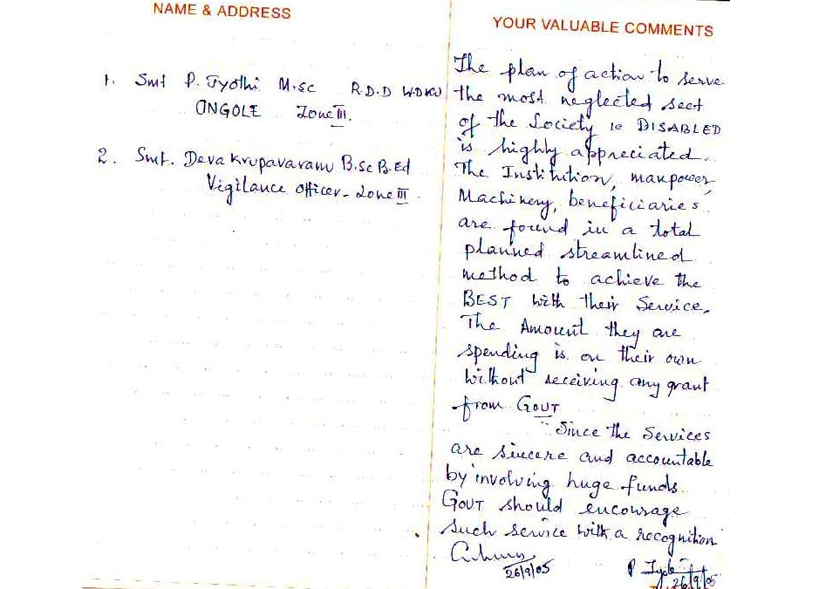 NAME & ADDRESS
1. Smt P. Jyothi M.sc R.D.D W.D&CW
ONGOLE Zone III.
2. Smt. Deva Krupavaram B.Sc B.Ed
Vigilance officer - Zone III.
YOUR VALUABLE COMMENTS
The plan of action to serve
the most neglected sect
of the Society ie DISABLED
is highly appreciated.
The Institution, manpower,
Machinery, beneficiaries
are found in a total
planned streamlined
method to achieve the
BEST with their Service.
The Amount they are
spending is on their own
without receiving any grant
from GOUT
Since the Services
are sincere and accountable
by involving huge funds.
GOUT should encourage
such service with a recognition
26/9/05
P Jyothi
26/9/05